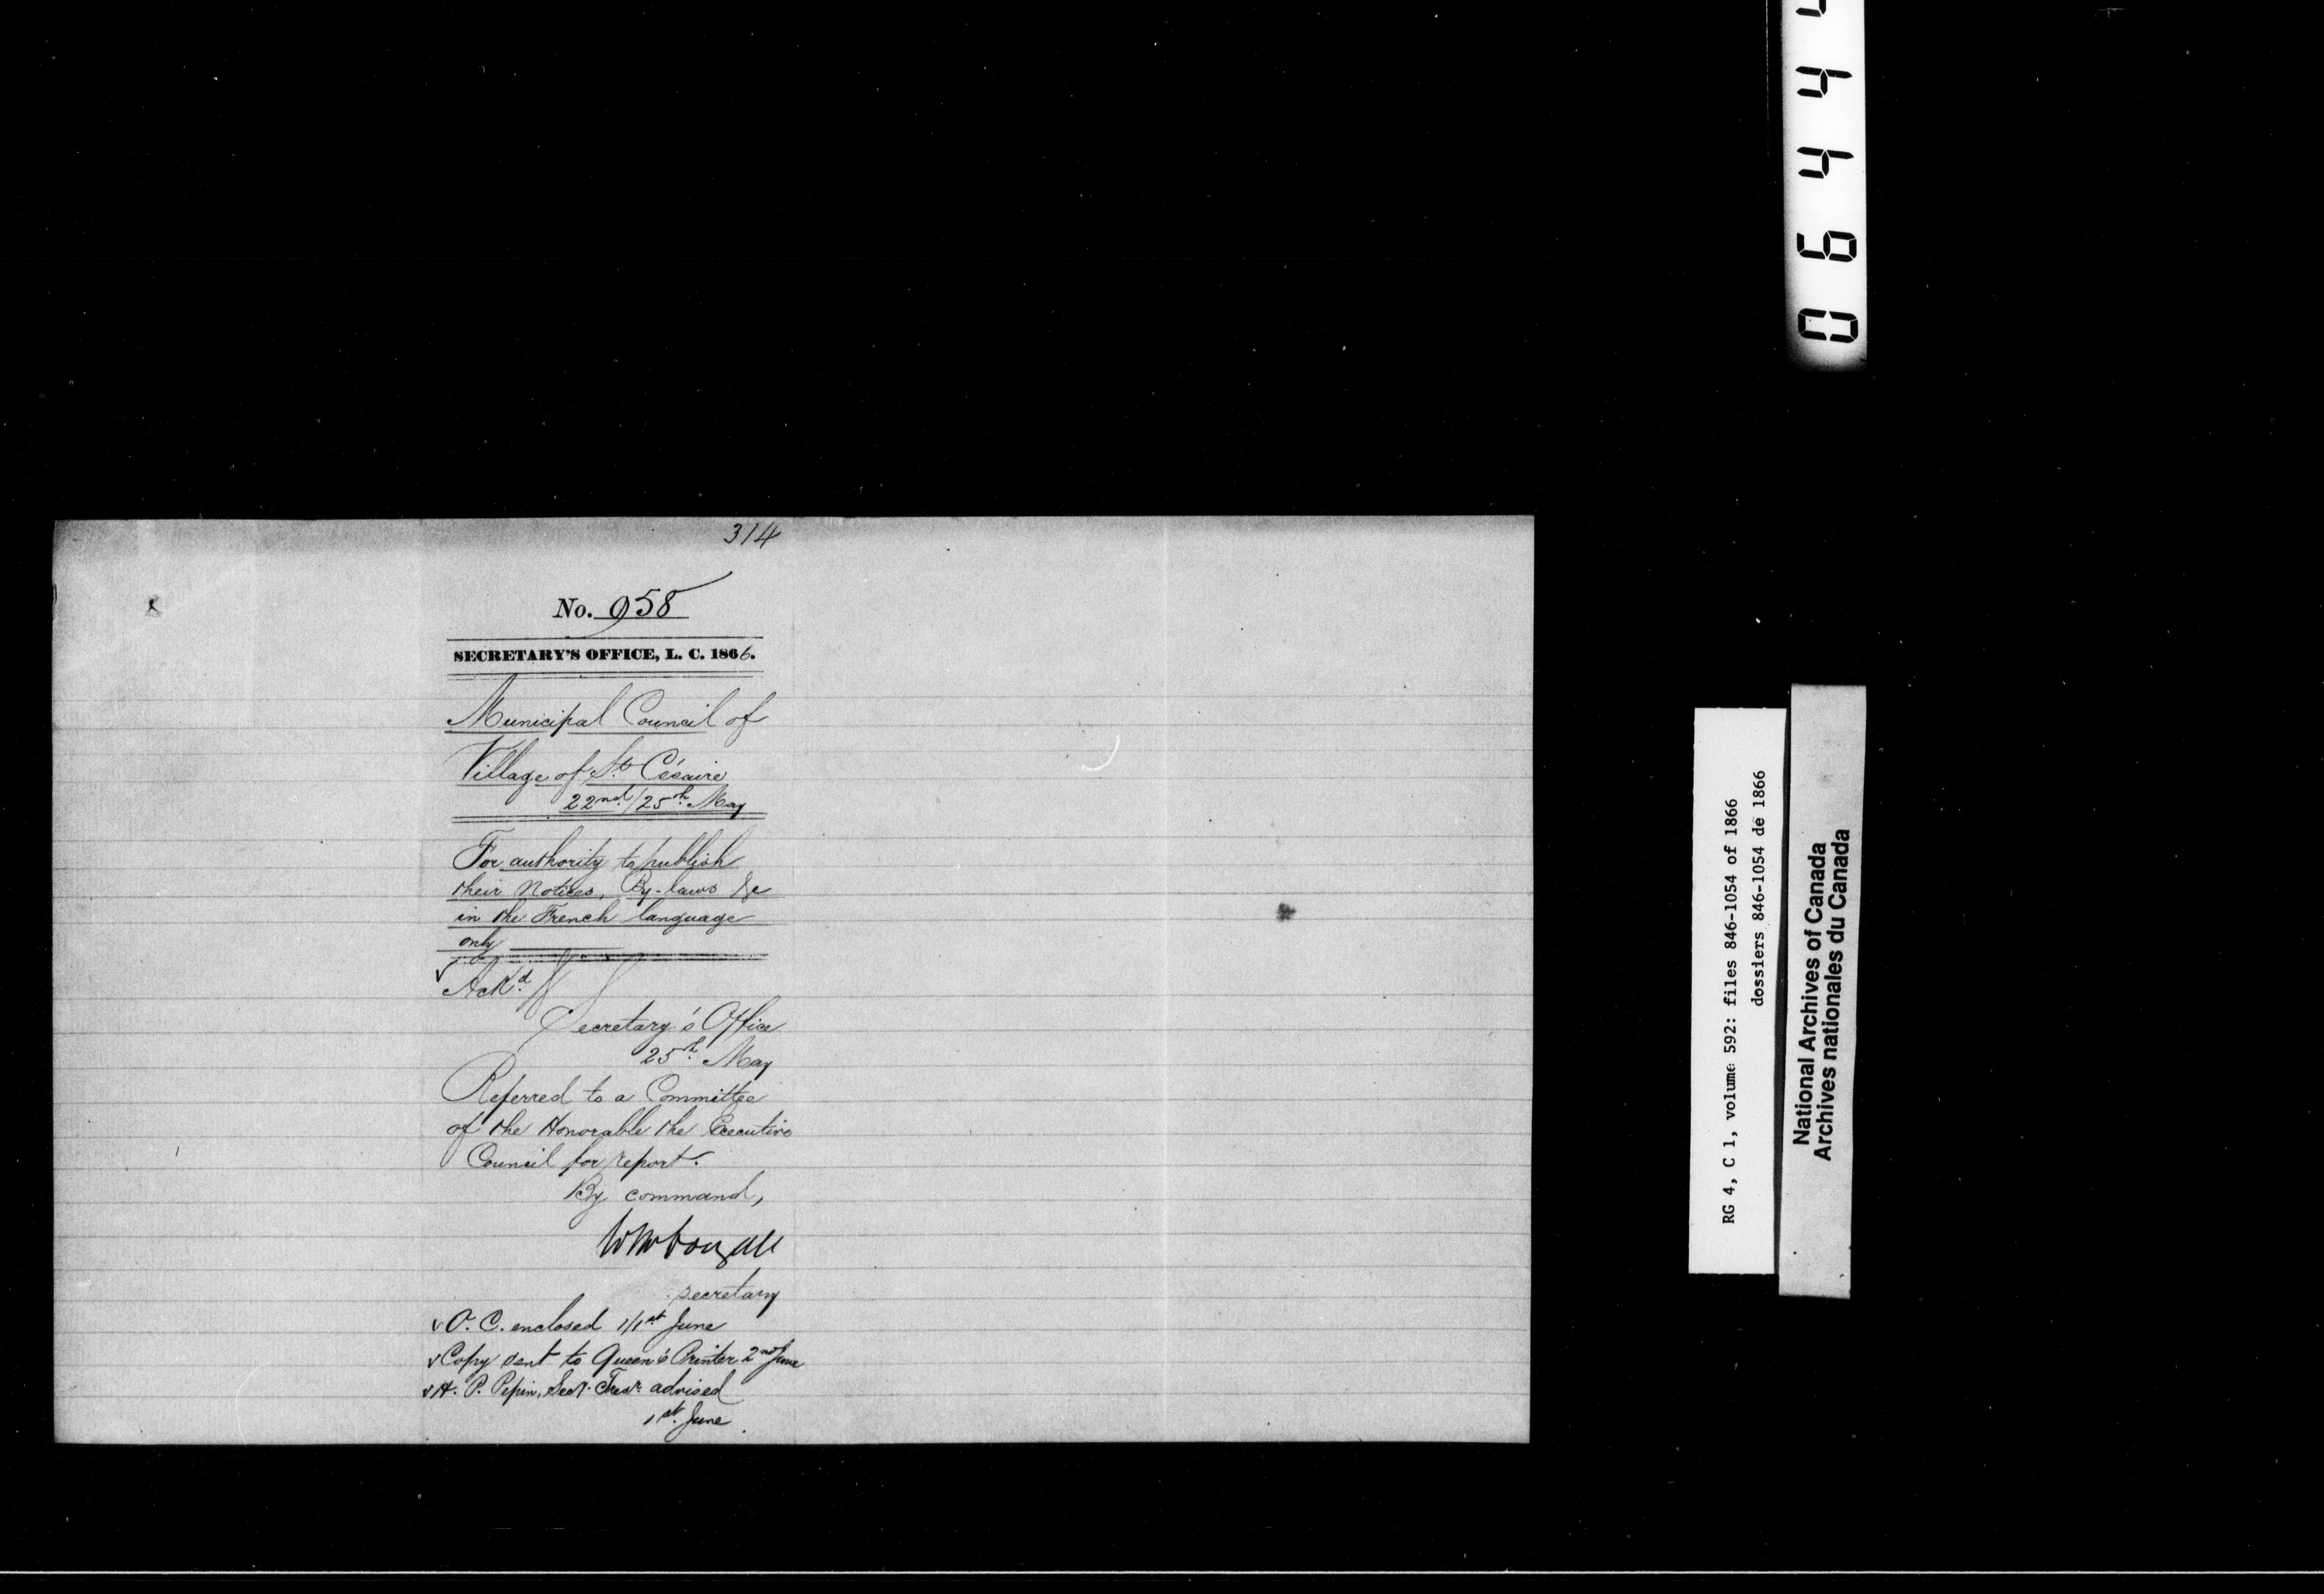 314
No. 958
SECRETARY'S OFFICE, L. C. 1866.
Municipal Council of
Village of St. Césaire
22nd/25th May
For authority to publish
their Notices, By-laws &c
in the French language
only
Ackd.
Secretary's Office
25th May
Referred to a Committee
of the Honorable the Executive
Council for report.
By command,
WMcDougall
Secretary
O. C. enclosed 1/1st June
Copy sent to Queen's Printer 2nd June
H. P. Pepin, Secy. Treasr. advised
1st. June
0 6 4 4
RG 4, C 1, volume 592: files 846-1054 of 1866
dossiers 846-1054 de 1866
National Archives of Canada
Archives nationales du Canada